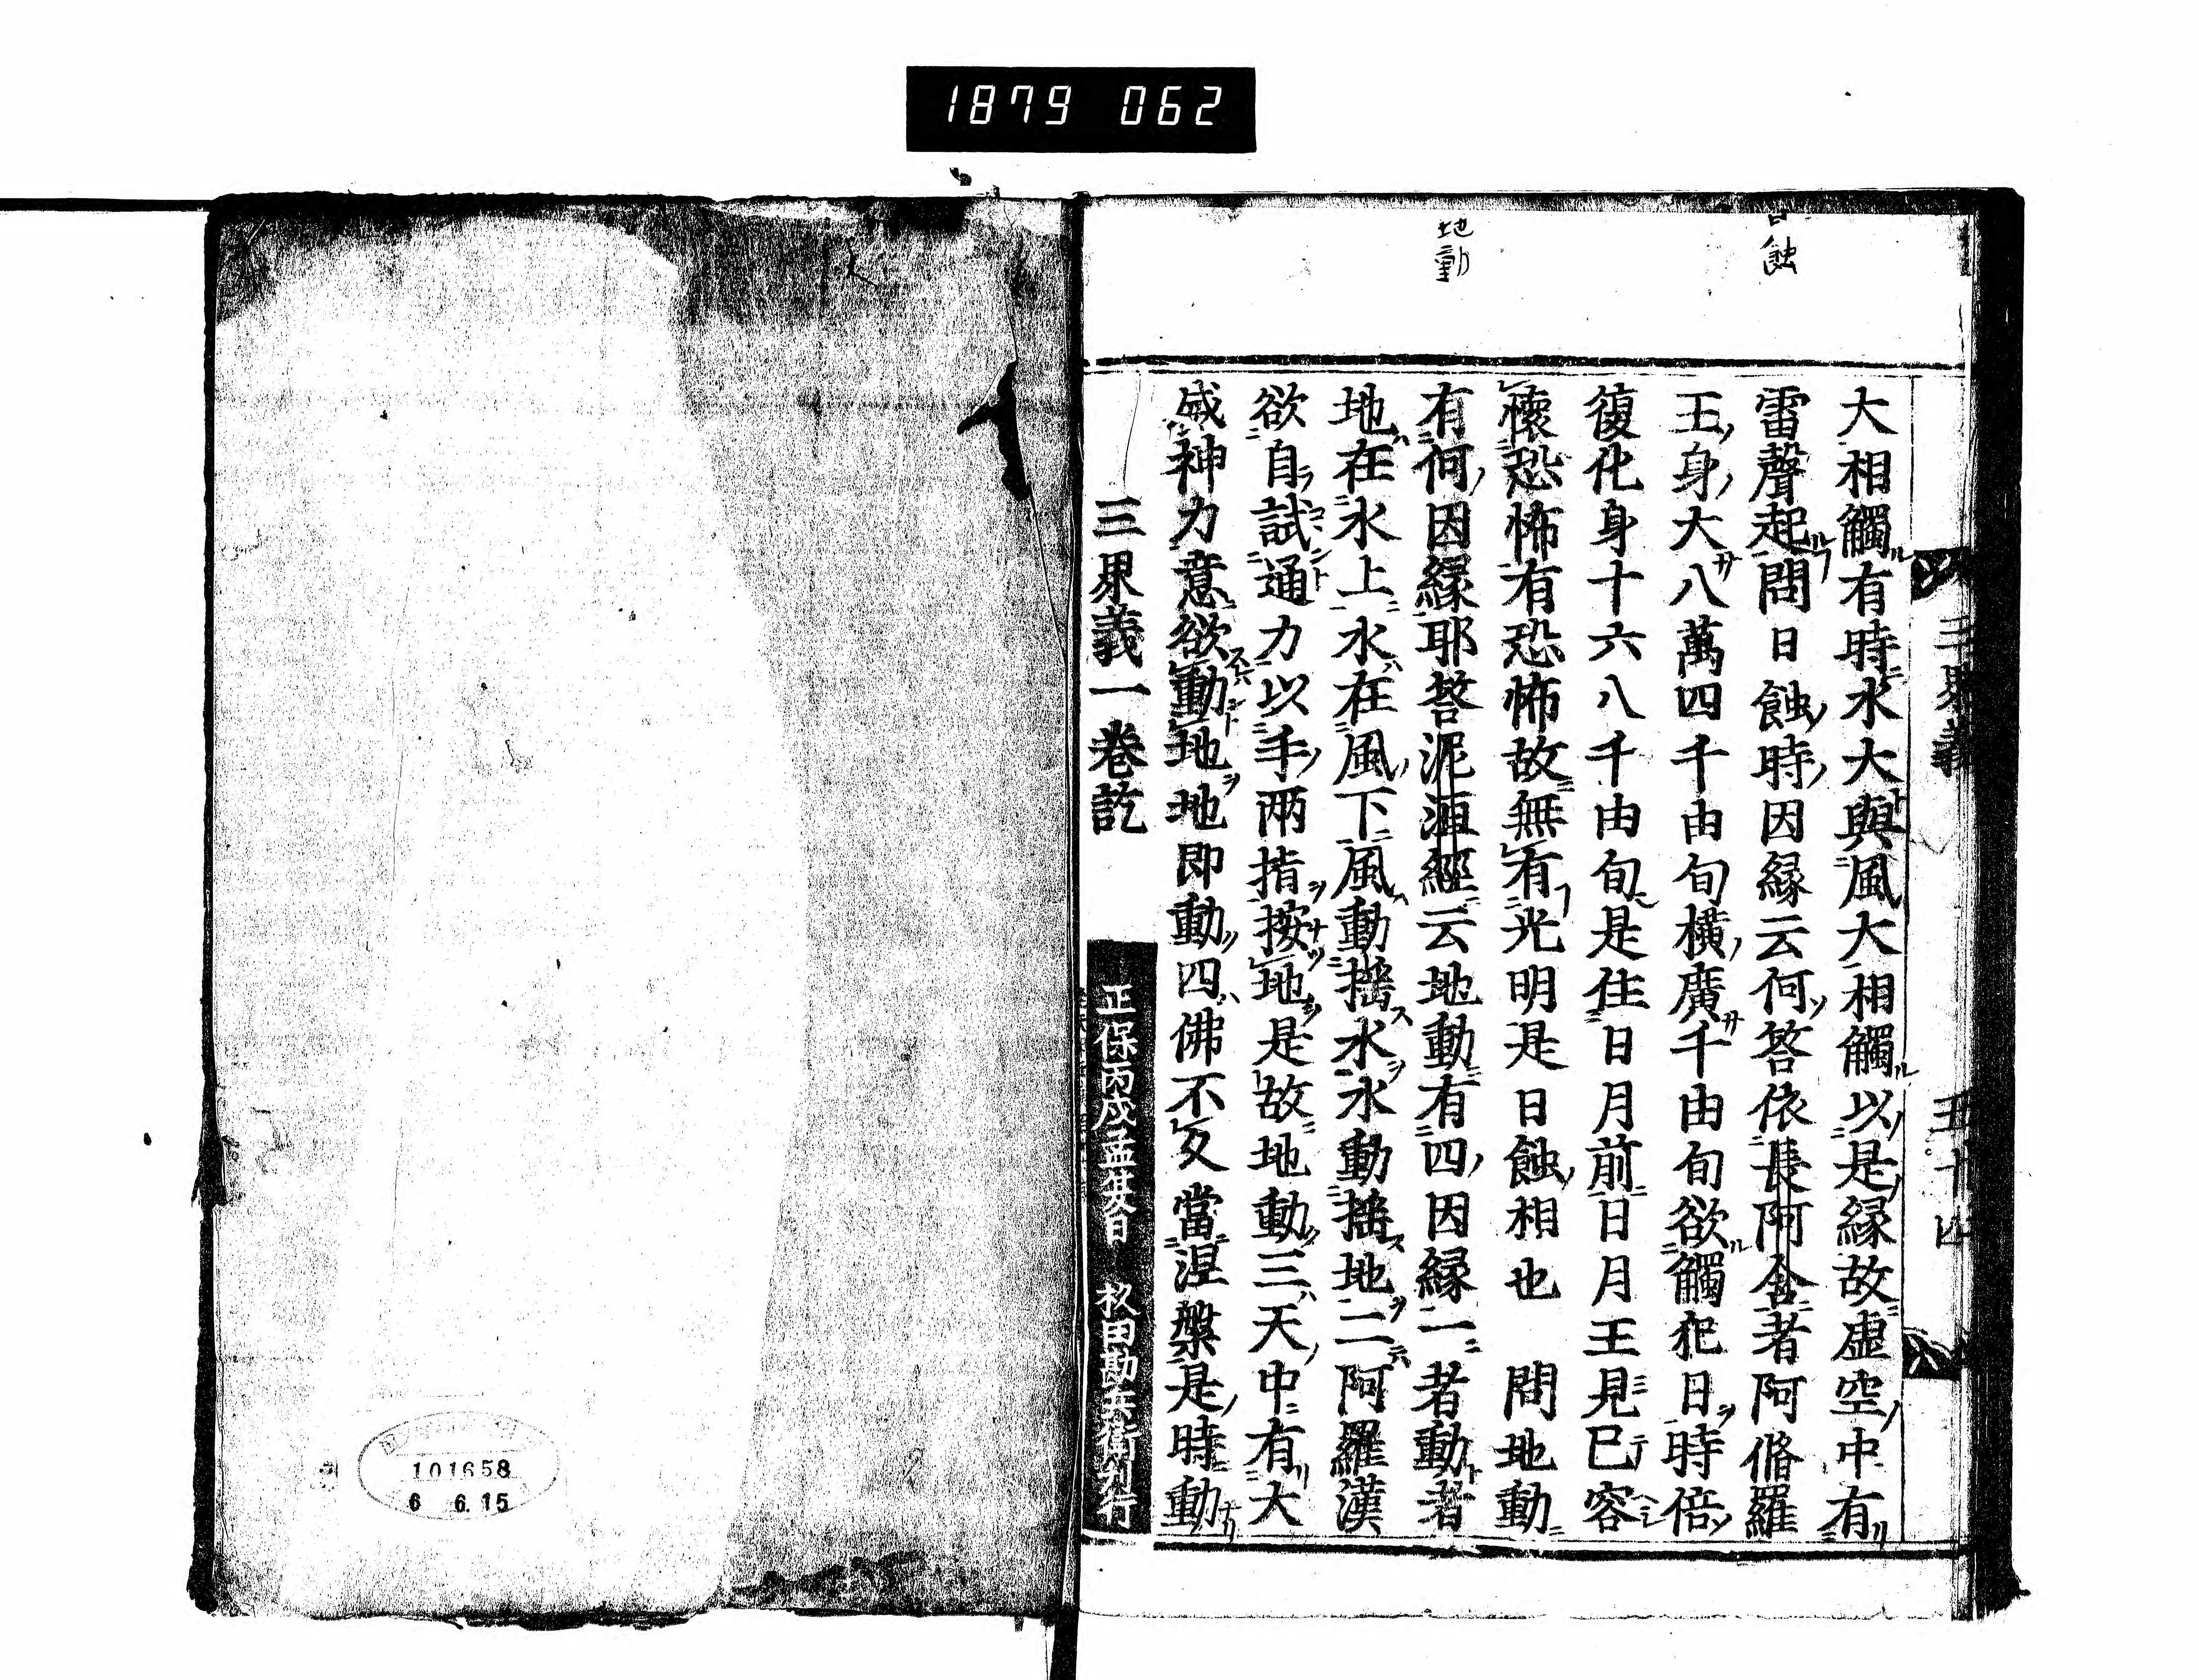 1879 062
日蝕
地動
三界義 五十四
大相觸有時水大與風大相觸以是縁故虚空中有
雷聲起問日蝕時因縁云何答依長阿含者阿脩羅
王身大八萬四千由旬横廣千由旬欲觸犯日時倍
復化身十六八千由旬是住日月前日月王見已容
懷恐怖有恐怖故無有光明是日蝕相也 問地動
有何因縁耶答泥洹經云地動有四因縁一者動者
地在水上水在風下風動搖水水動搖地二阿羅漢
欲自試通力以手兩指按地是故地動三天中有大
威神力意欲動地地即動四佛不久當涅槃是時動
三界義一巻訖
正保丙戌孟春日 杦田勘兵衛刊行
101658
6 6.15